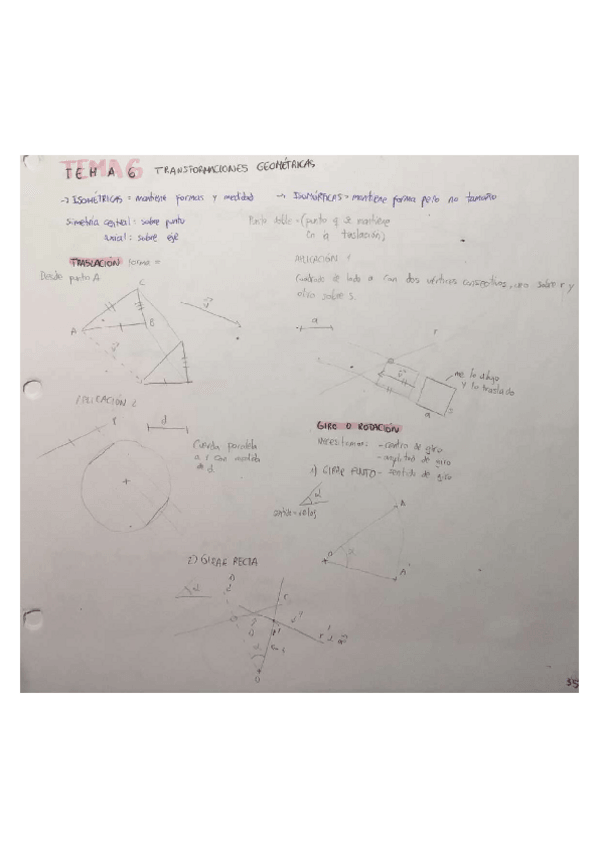 TEMA 6 TRANSFORMACIONES GEOMÉTRICAS
-> ISOMÉTRICAS = mantiene formas y medidad -> ISOMÓRFICAS = mantiene forma pero no tamaño
Simetría central: sobre punto
axial: sobre eje
Punto doble = (punto q se mantiene
en la traslación)
TRASLACIÓN FORMA =
Desde punto A
C
A
B
v
APLICACIÓN 1
Cuadrado de lado a con dos vértices consecutivos, uno sobre r y
otro sobre s.
a
r
me lo dibujo
y lo traslado
a
s
APLICACIÓN 2
r
d
Cuerda paralela
a r que medida
de d
GIRO O ROTACIÓN
Necesitamos: - centro de giro
- amplitud de giro
- sentido de giro
1) GIRAR PUNTO
α
A
O
α
A'
2) GIRAR RECTA
α
r'
α
O
35